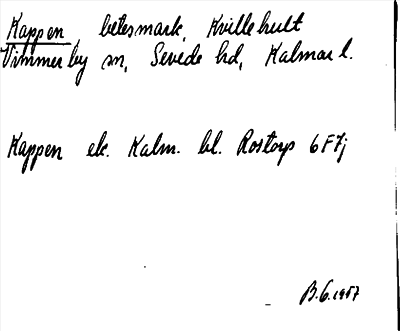 Kappen, betesmark, Kvillehult
Vimmerby sn, Sevede hd, Kalmar l.
Kappen ek. Kalm. bl. Rostorp 6F7j
B.G. 1957